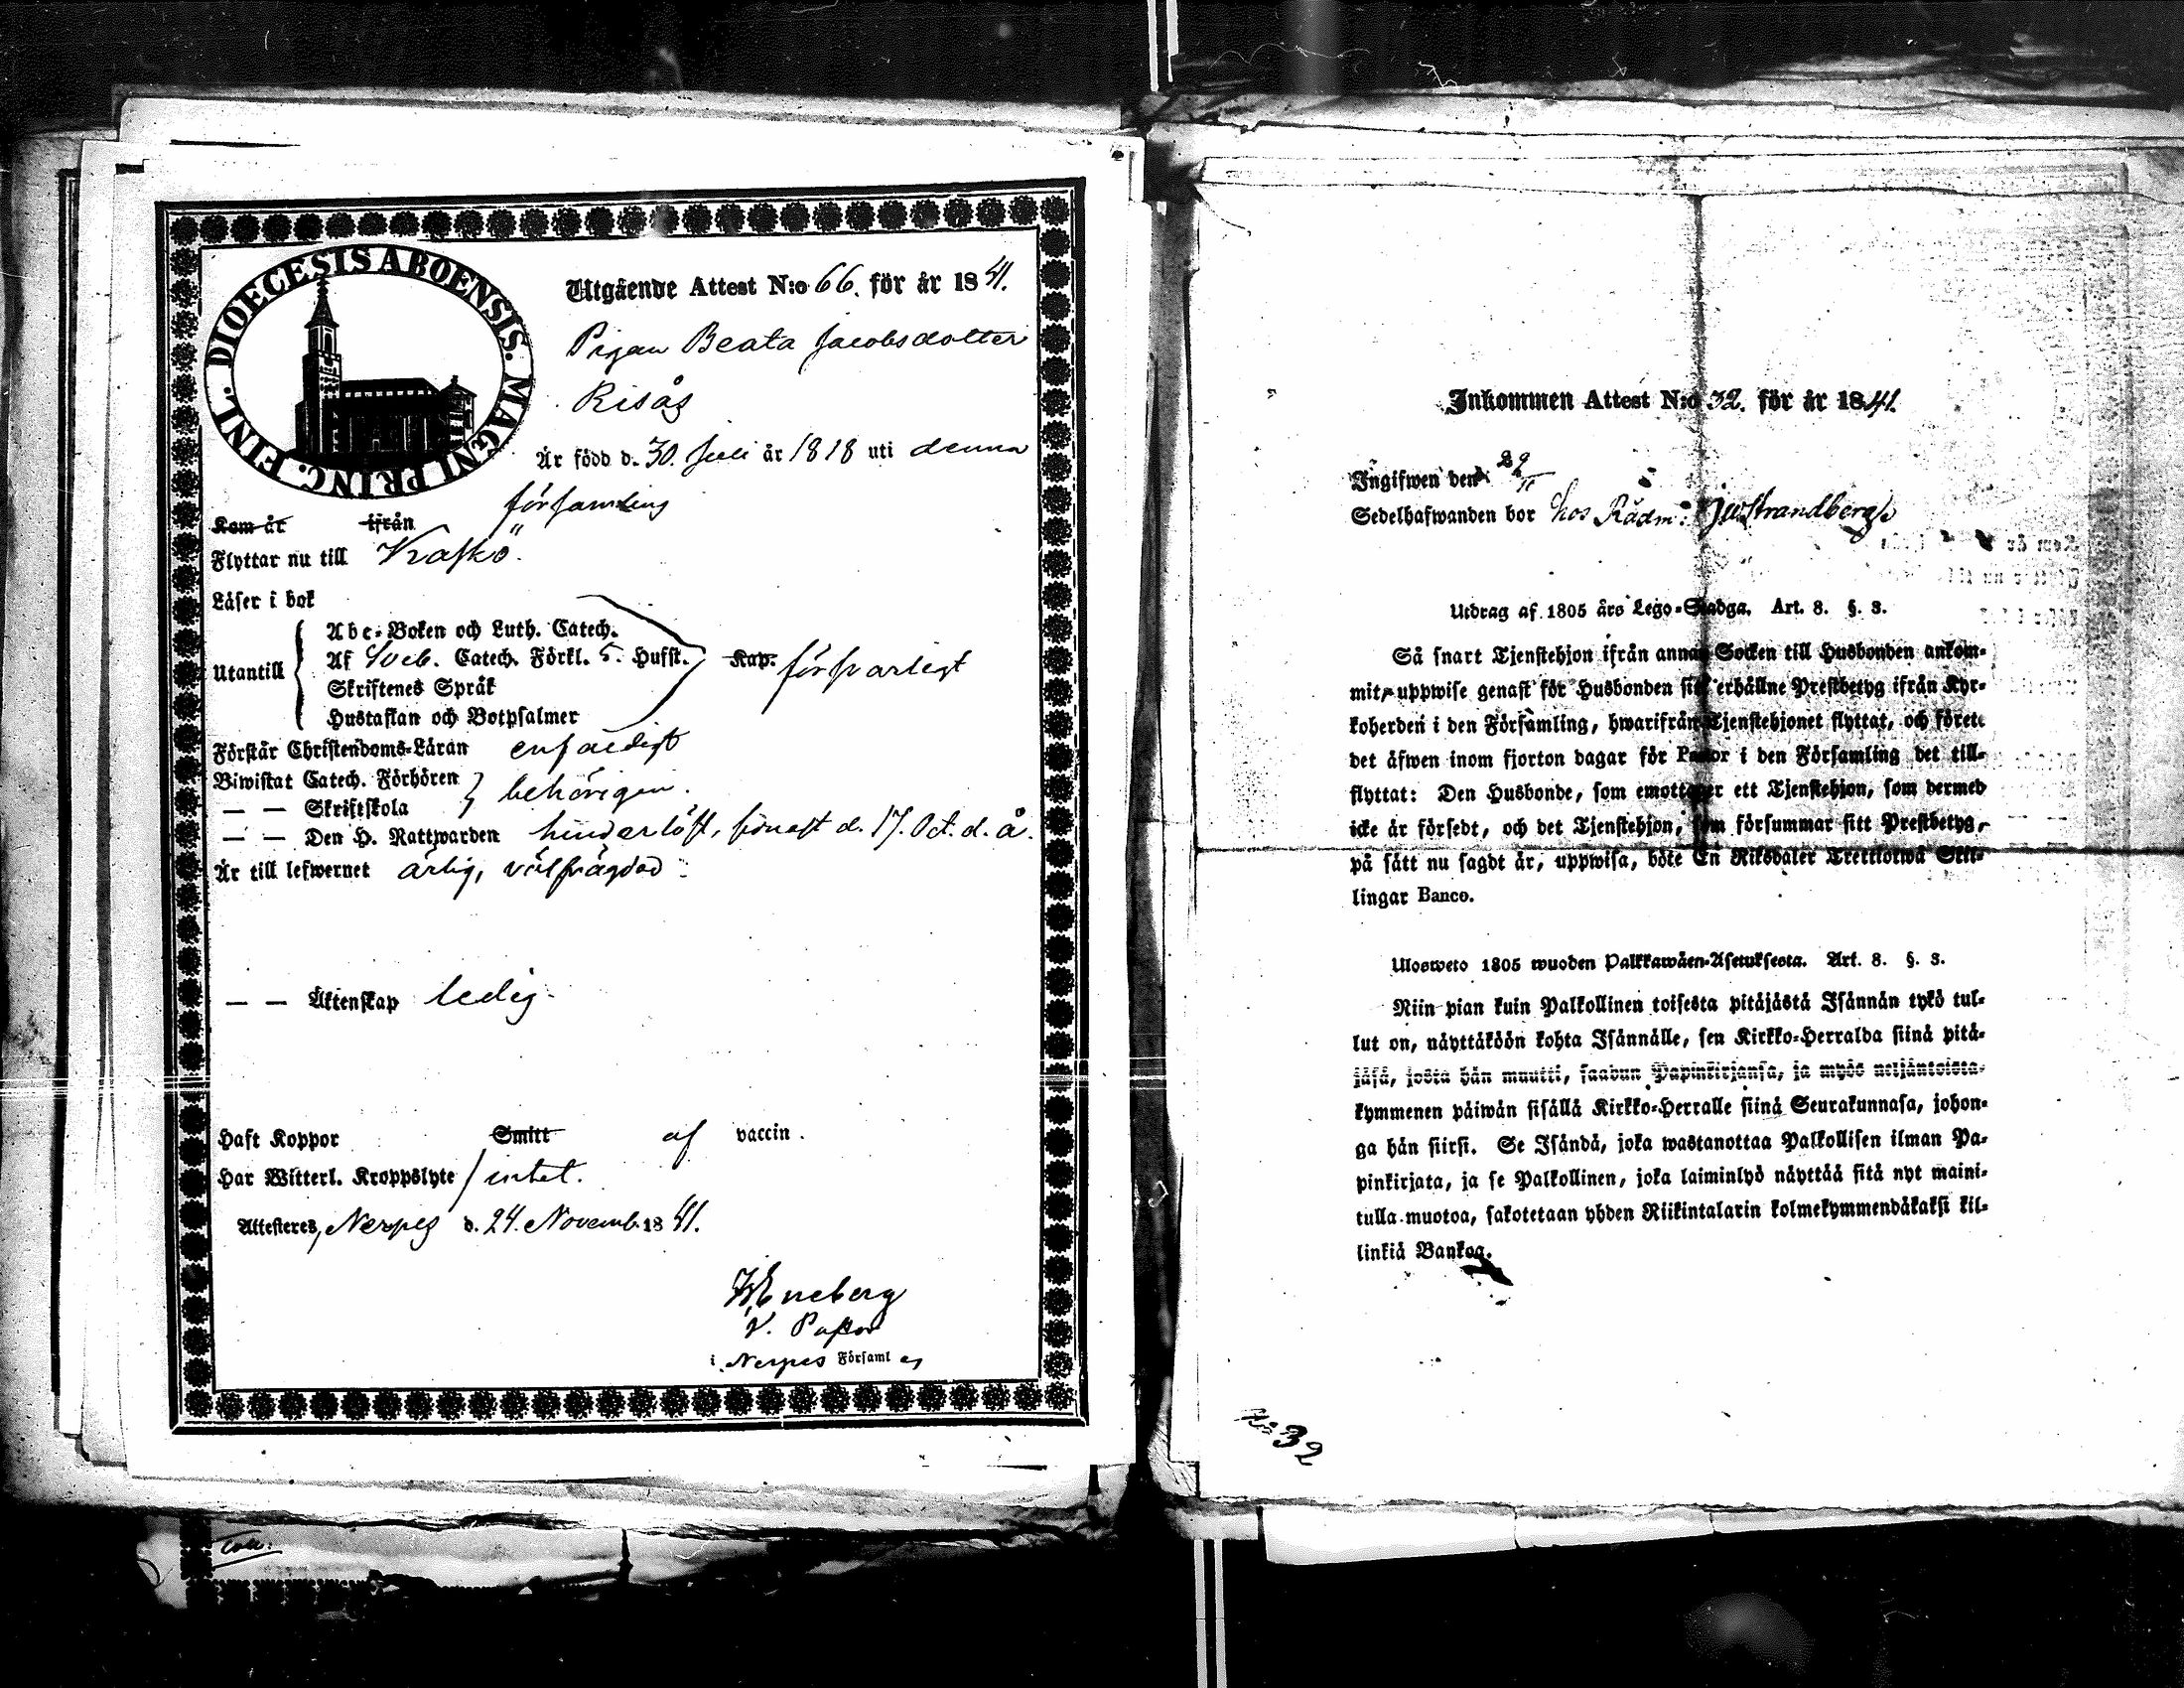 DIOECESIS ABOENSIS. MAGNI PRINC. FINL.
Utgående Attest N:o 66. för år 1841.
Pigan Beata Jacobsdotter
Risås
Är född d. 30. Juli år 1818 uti denna
församling
Kom år ifrån
Flyttar nu till Kaskö.
Läser i bok
Utantill
Abc-Boken och Luth. Catech.
Af Sveb. Catech. Förkl. 5. Hufst. Kap. försvarligt
Skriftenes Språk
Hustaflan och Botpsalmer
Förstår Christendoms-Läran enfaldigt
Biwistat Catech. Förhören
— — Skriftskola behörigen.
— — Den H. Nattwarden hinderlöst, sednast d. 17. Oct. d. å.
Är till lefwernet ärlig, välfrägdad.
— — Äktenskap ledig.
Haft Koppor Smitt af vaccin.
Har Witterl. Kroppslyte intet.
Attesteres, Nerpes d. 24. Novemb. 1841.
Eneberg
V. Pastor
i Nerpes Församl
Inkommen Attest N:o 32. för år 1841.
Ingifwen den 29/11
Sedelhafwanden bor hos Rådm: Strandberg
Utdrag af 1805 års Lego-Stadga. Art. 8. §. 3.
Så snart Tjenstehjon ifrån annan Socken till Husbonden ankom-
mit, uppwise genast för Husbonden sitt erhållne Prestbetyg ifrån Kyr-
koherden i den Församling, hwarifrån Tjenstehjonet flyttat, och förete
det äfwen inom fjorton dagar för Pastor i den Församling det till-
flyttat: Den Husbonde, som emottager ett Tjenstehjon, som dermed
icke är försedt, och det Tjenstehjon, som försummar sitt Prestbetyg,
på sätt nu sagdt är, uppwisa, böte En Riksdaler Trettiotwå Skil-
lingar Banco.
Ulosweto 1805 wuoden Palkkawäen-Asetuksesta. Art. 8. §. 3.
Niin pian kuin Palkollinen toisesta pitäjästä Isännän tykö tul-
lut on, näyttäköön kohta Isännälle, sen Kirkko-Herralda siinä pitä-
jäsä, josta hän muutti, saadun Papinkirjansa, ja myös neljäntoista-
kymmenen päiwän sisällä Kirkko-Herralle siinä Seurakunnasa, johon-
ga hän siirsi. Se Isändä, joka wastanottaa Palkollisen ilman Pa-
pinkirjata, ja se Palkollinen, joka laiminlyö näyttää sitä nyt maini-
tulla muotoa, sakotetaan yhden Riikintalarin kolmekymmendäkaksi kil-
linkiä Bankoa.
No 32